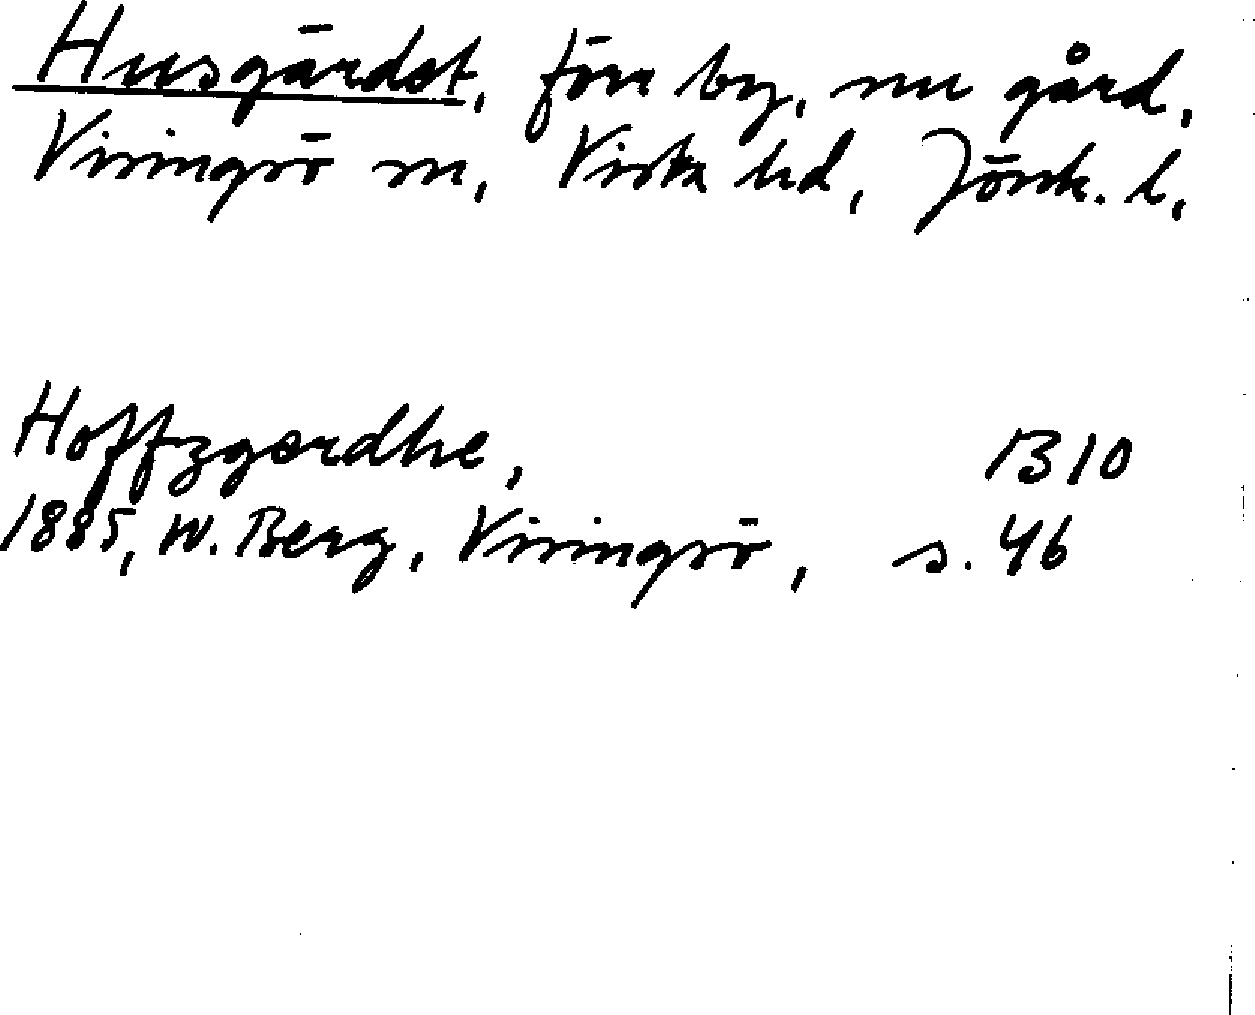 Husgärdet, förr by, nu gård,
Visingsö sn, Vista hd, Jönk. l,
Hoffzgærdhe, B10
1885, W. Berg, Visingsö, s. 46